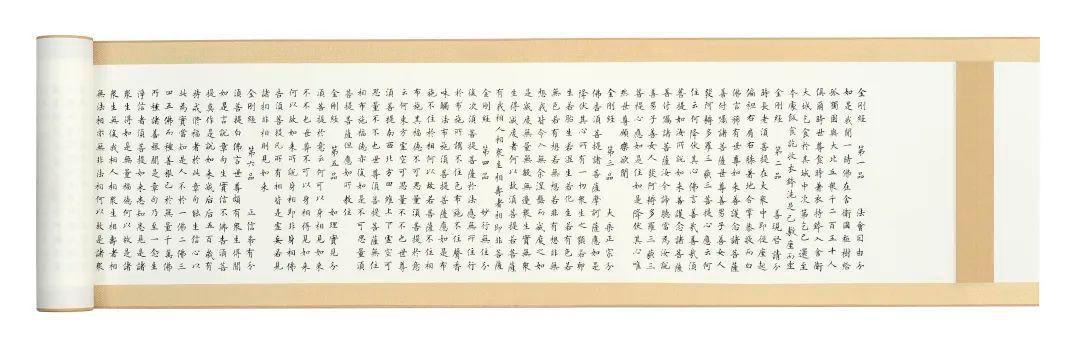 金剛經 第一品 法會因由分
如是我聞一時佛在舍衛國祇樹給
孤獨園與大比丘衆千二百五十人
俱爾時世尊食時著衣持鉢入舍衛
大城乞食於其城中次第乞已還至
本處飯食訖收衣鉢洗足已敷座而坐
金剛經 第二品 善現啟請分
時長老須菩提在大衆中即從座起
偏袒右肩右膝著地合掌恭敬而白
佛言希有世尊如來善護念諸菩薩
善付囑諸菩薩世尊善男子善女人
發阿耨多羅三藐三菩提心應云何
住云何降伏其心佛言善哉善哉須
菩提如汝所說如來善護念諸菩薩
善付囑諸菩薩汝今諦聽當為汝說
善男子善女人發阿耨多羅三藐三
菩提心應如是住如是降伏其心唯
然世尊願樂欲聞
金剛經 第三品 大乘正宗分
佛告須菩提諸菩薩摩訶薩應如是
降伏其心所有一切衆生之類若卵
生若胎生若濕生若化生若有色若
無色若有想若無想若非有想非無
想我皆令入無餘涅槃而滅度之如
是滅度無量無數無邊衆生實無衆
生得滅度者何以故須菩提若菩薩
有我相人相衆生相壽者相即非菩薩
金剛經 第四品 妙行無住分
復次須菩提菩薩於法應無所住行
於布施所謂不住色布施不住聲香
味觸法布施須菩提菩薩應如是布
施不住於相何以故若菩薩不住相
布施其福德不可思量須菩提於意
云何東方虛空可思量不不也世尊
須菩提南西北方四維上下虛空可
思量不不也世尊須菩提菩薩無住
相布施福德亦復如是不可思量須
菩提菩薩但應如所教住
金剛經 第五品 如理實見分
須菩提於意云何可以身相見如來
不不也世尊不可以身相得見如來
何以故如來所說身相即非身相佛
告須菩提凡所有相皆是虛妄若見
諸相非相則見如來
金剛經 第六品 正信希有分
須菩提白佛言世尊頗有衆生得聞
如是言說章句生實信不佛告須菩
提莫作是說如來滅后后五百歲有
持戒修福者於此章句能生信心以
此為實當知是人不於一佛二佛三
四五佛而種善根已於無量千萬佛
所種諸善根聞是章句乃至一念生
淨信者須菩提如來悉知悉見是諸
衆生得如是無量福德何以故是諸
衆生無復我相人相衆生相壽者相
無法相亦無非法相何以故是諸衆